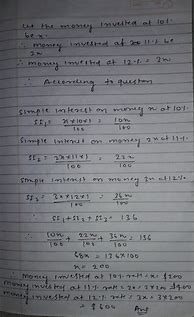 Let the money invested at 10%
be x.
∴ money invested at 11% be
2x
∴ money invested at 12% = 3x
∴ According to question
Simple interest on money x at 10%
SI₁ = x×10×1/100 = 10x/100
Simple interest on money 2x at 11%
SI₂ = 2x×11×1/100 = 22x/100
Simple interest on money 3x at 12%
SI₃ = 3x×12×1/100 = 36x/100
∴ SI₁+SI₂+SI₃ = 136
∴ 10x/100 + 22x/100 + 36x/100 = 136
68x = 136×100
x = 200
∴ money invested at 10% rate = x = $200
money invested at 11% rate = 2x = 2×200 = $400
money invested at 12% rate = 3x = 3×200
= $600